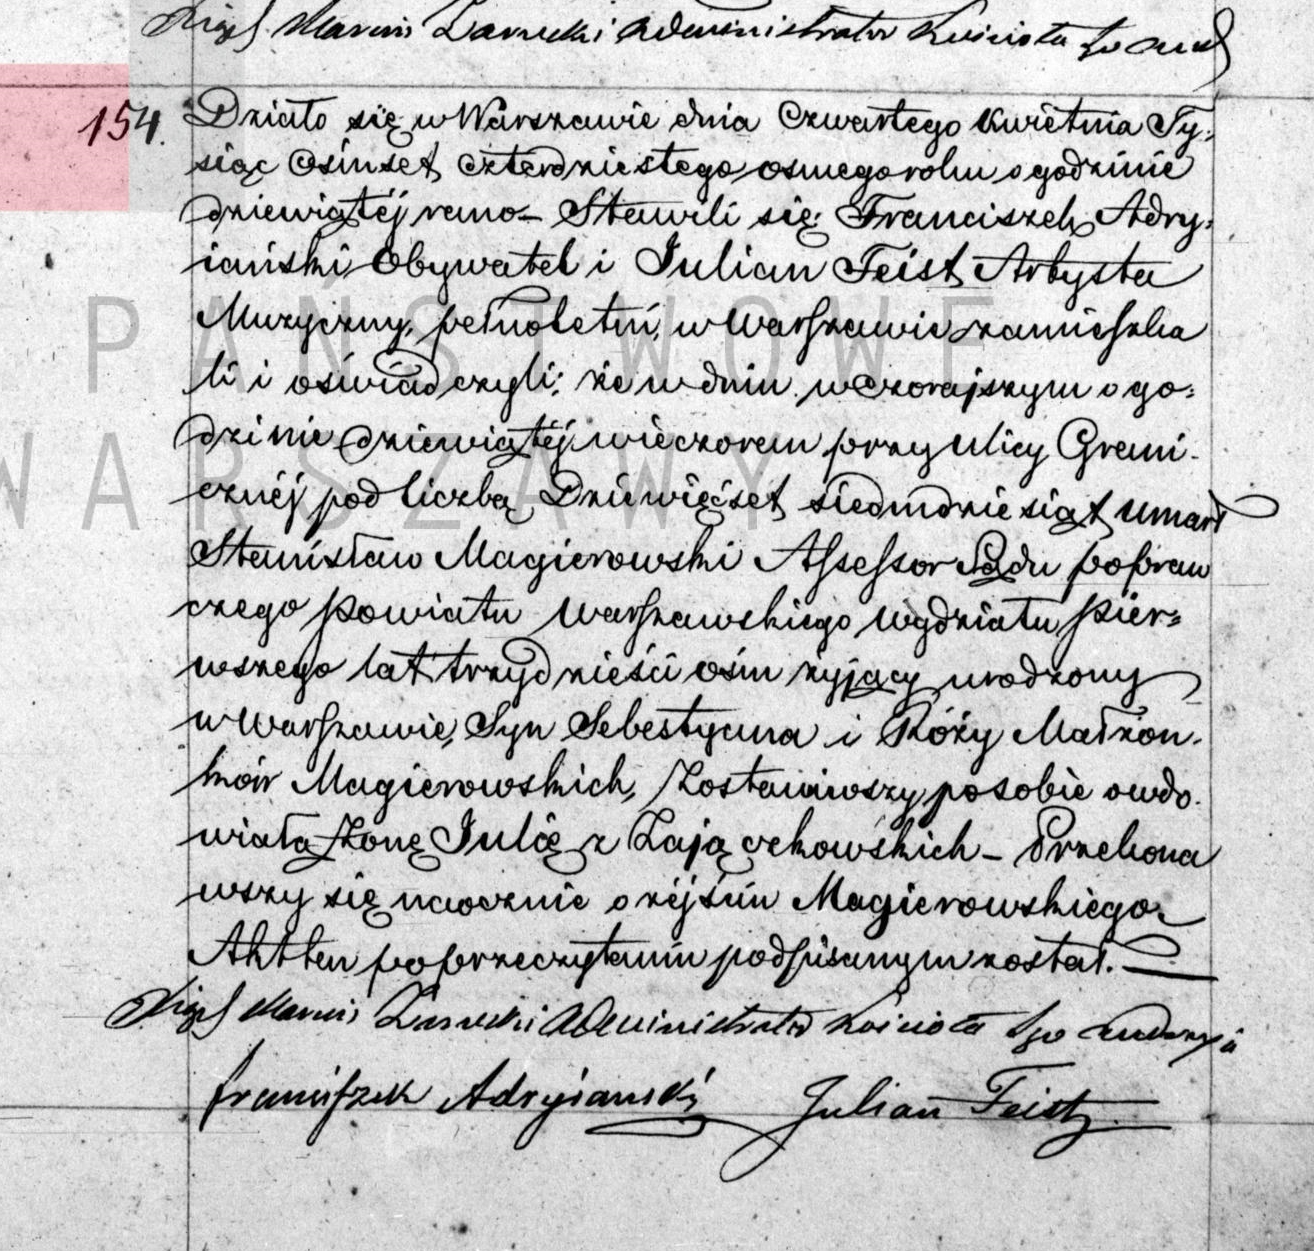 Xiądz Marcin Zarnecki Administrator Kościoła Sgo And
154.
Działo się w Warszawie dnia Czwartego Kwietnia Ty,
siąc Ośmset czterdziestego osmego roku o godzinie
dziewiątéj rano – Stawili się: Franciszek Adry,
iański Obywatel i Julian Feist Artysta
Muzyczny, pełnoletni, w Warszawie zamieszka
li i oświadczyli; że w dniu wczorajszym o go:
dzinie dziewiątéj wieczorem przy ulicy Grani-
cznéj pod liczbą Dziewięćset siedmdziesiąt umarł
Stanisław Magierowski Assessor Sądu popraw
czego powiatu Warszawskiego wydziału pier=
wszego lat trzydzieści ośm żyjący urodzony
w Warszawie, Syn Sebestyana i Róży Małżon-
ków Magierowskich, Zostawiwszy po sobie owdo-
wiałą Żonę Julię z Zajączkowskich – Przekona
wszy się naocznie o zejściu Magierowskiego
Akt ten po przeczytaniu podpisanym został.
Xiądz Marcin Zarnecki Administrator Kościoła Sgo Andrzeja
Franciszek Adryiański Julian Feist
PAŃSTWOWE
WARSZAWY